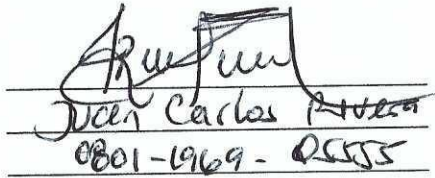 Juan Carlos Rivera
0801-1969-05555